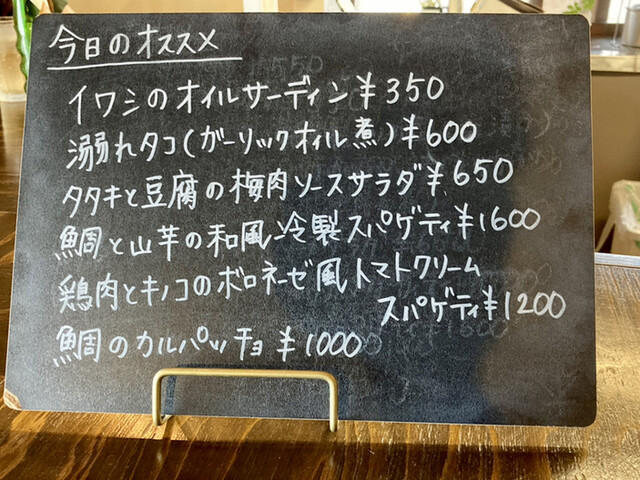 今日のオススメ
イワシのオイルサーディン¥350
溺れタコ(ガーリックオイル煮)¥600
タタキと豆腐の梅肉ソースサラダ¥650
鯛と山芋の和風冷製スパゲティ¥1600
鶏肉とキノコのボロネーゼ風トマトクリーム
スパゲティ¥1200
鯛のカルパッチョ ¥1000